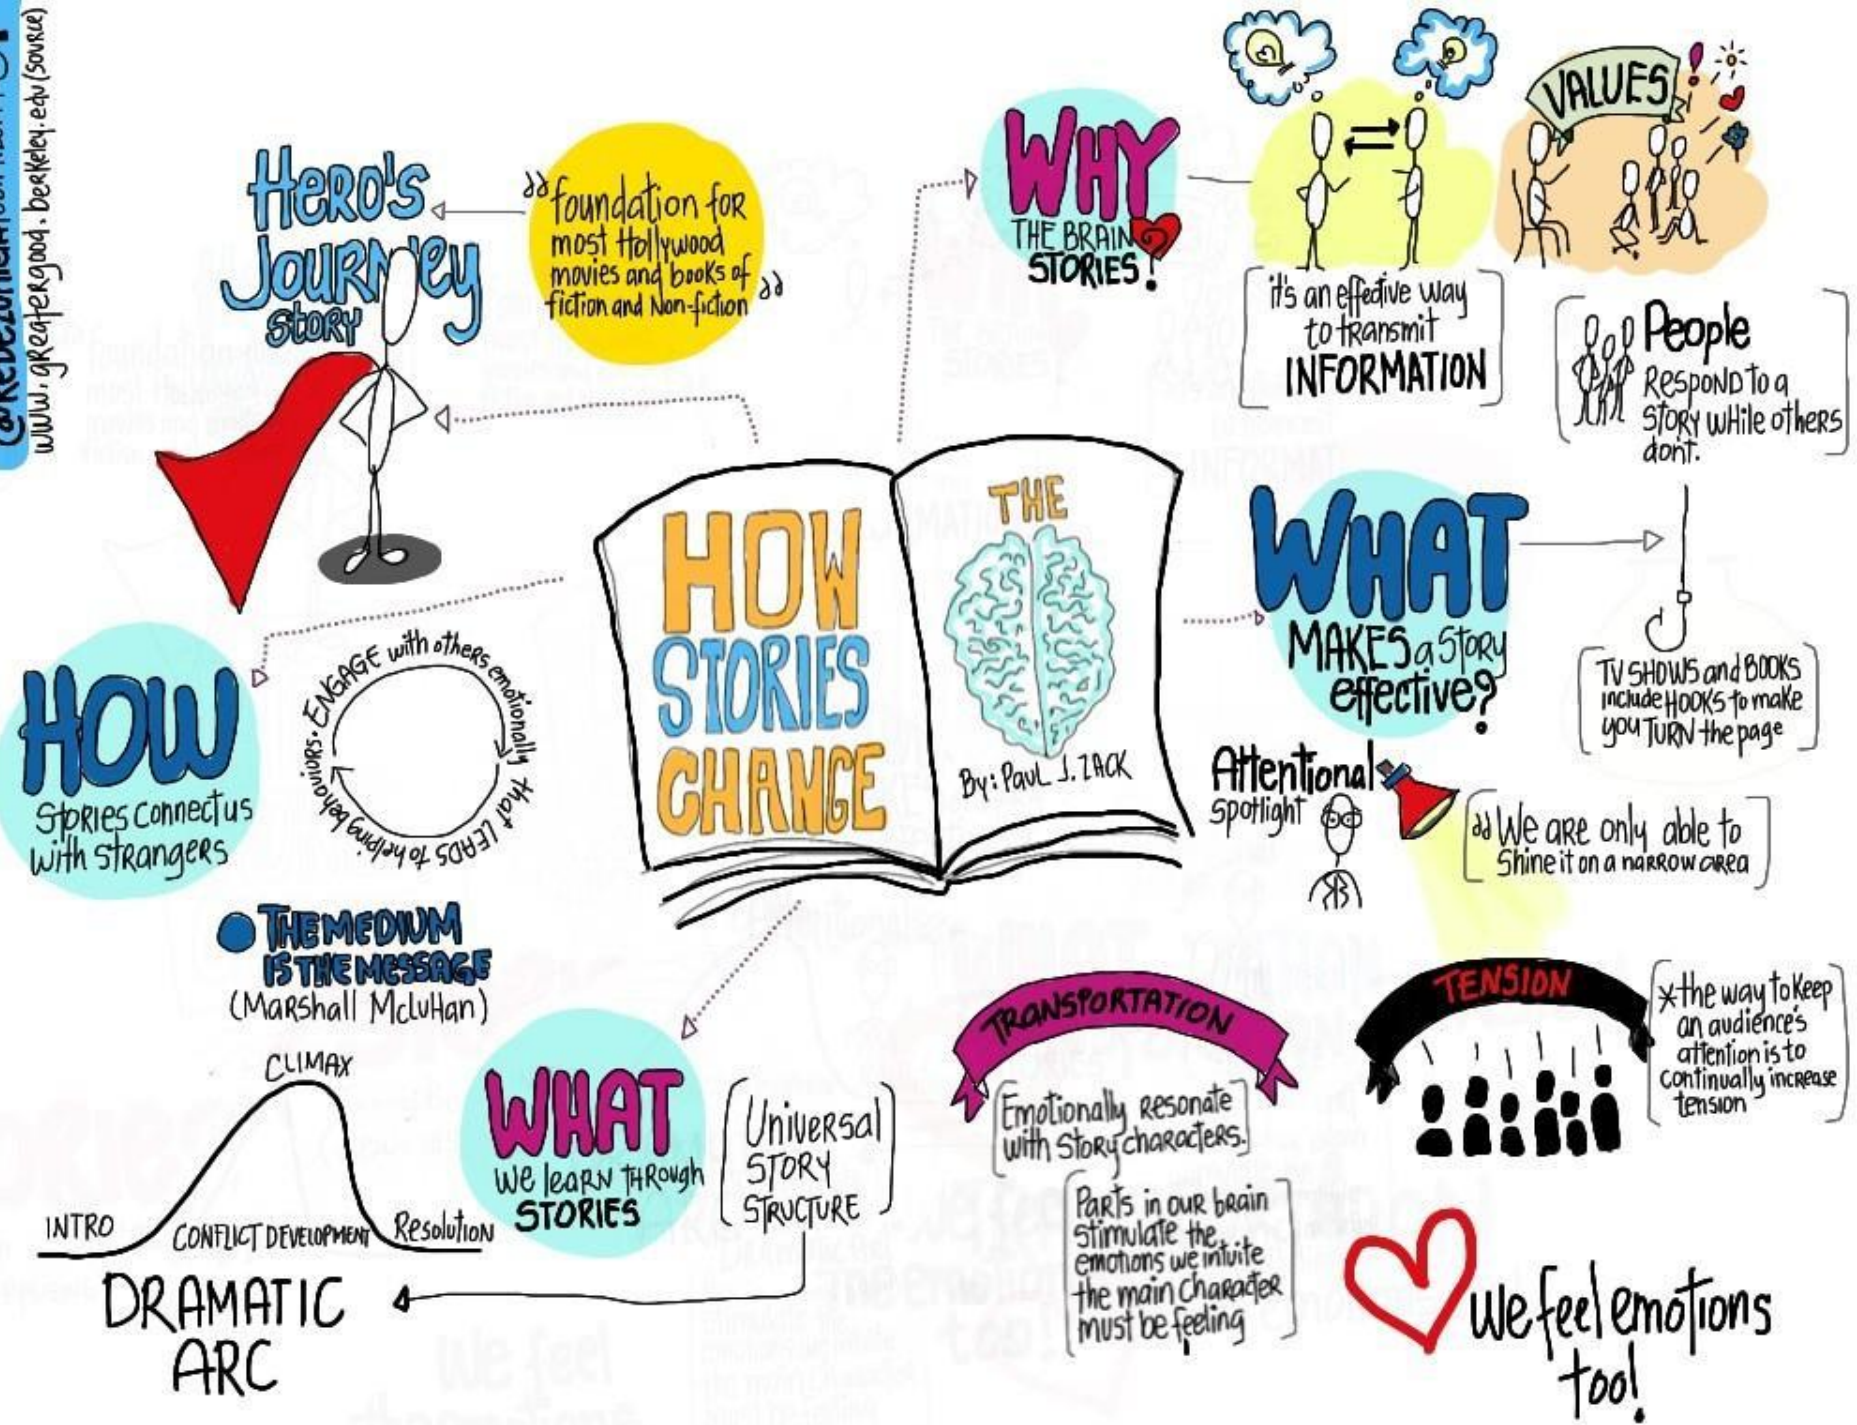 www.greatergood.berkeley.edu (source)
Hero's
Journey
Story
foundation for
most Hollywood
movies and books of
fiction and Non-fiction
WHY
THE BRAIN
STORIES!
it's an effective way
to transmit
INFORMATION
VALUES
People
Respond to a
story while others
dont.
HOW
STORIES
CHANGE
THE
By: Paul J. ZACK
WHAT
MAKES a Story
effective?
TV SHOWS and BOOKS
include HOOKS to make
you TURN the page
Attentional
spotlight
We are only able to
Shine it on a narrow area
HOW
Stories connect us
with strangers
ENGAGE with others emotionally that LEADS to helping behaviors.
THE MEDIUM
IS THE MESSAGE
(Marshall McLuhan)
CLIMAX
INTRO
CONFLICT DEVELOPMENT
Resolution
DRAMATIC
ARC
WHAT
We learn THROUGH
STORIES
Universal
STORY
STRUCTURE
TRANSPORTATION
Emotionally Resonate
with Story characters.
Parts in our brain
stimulate the
emotions we intuite
the main character
must be feeling
TENSION
*the way to keep
an audience's
attention is to
continually increase
tension
We feel emotions
too!